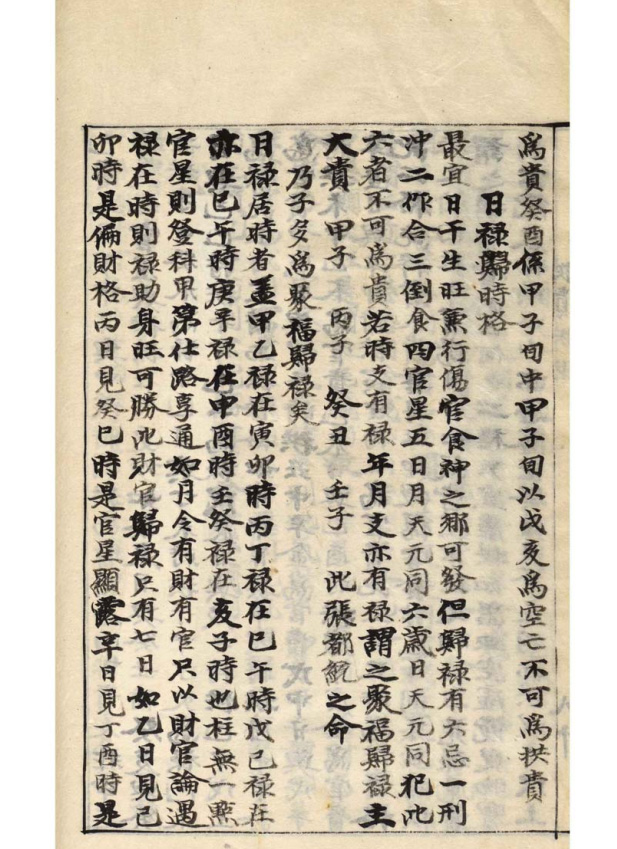 為貴癸酉係甲子旬中甲子旬以戌亥為空亡不可為拱貴
日禄歸時格
最宜日干生旺蕪行傷官食神之鄉可發但歸禄有六忌一刑
沖二作合三倒食四官星五日月天元同六歲日天元同犯此
六者不可為貴若時支有禄年月支亦有禄謂之聚福歸禄主
大貴 甲子 丙子 癸丑 壬子 此張都統之命
乃子多為聚福歸禄矣
日禄居時者盖甲乙禄在寅卯時丙丁禄在巳午時戊己禄在
亦在巳午時庚辛禄在申酉時壬癸禄在亥子時也柱無一點
官星則登科甲第仕路享通如月令有財有官只以財官論遇
禄在時則禄助身旺可勝此財官歸禄只有七日如乙日見己
卯時是偏財格丙日見癸巳時是官星顯露辛日見丁酉時是